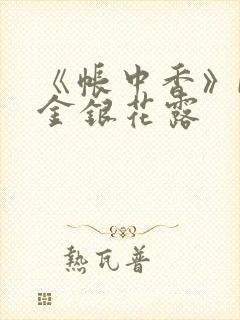 《帳中香》
金銀花露
熱瓦普